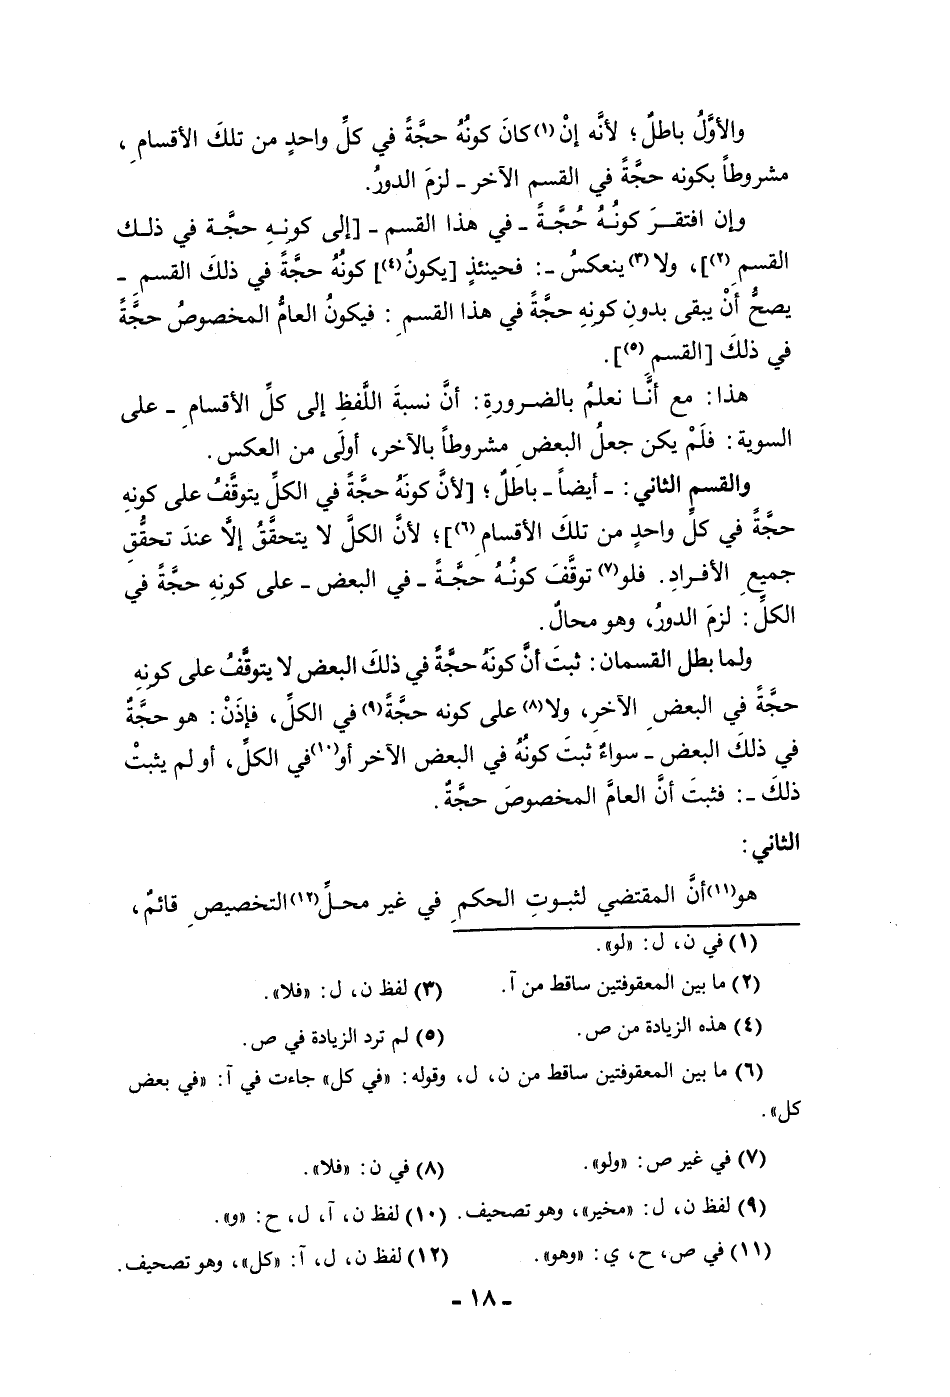 والأوَّلُ باطلٌ؛ لأنَّه إنْ(١) كانَ كونُهُ حجَّةً في كلِّ واحدٍ من تلكَ الأقسامِ،
مشروطاً بكونه حجَّةً في القسم الآخر ـ لزمَ الدورُ.
وإن افتقرَ كونُهُ حُجَّةً ـ في هذا القسم ـ [إلى كونِهِ حجَّة في ذلك
القسمِ(٢)]، ولا(٣) ينعكسُ ـ: فحينئذٍ [يكونُ(٤)] كونُهُ حجَّةً في ذلكَ القسمِ ـ
يصحُّ أنْ يبقى بدونِ كونِهِ حجَّةً في هذا القسمِ: فيكونُ العامُّ المخصوصُ حجَّةً
في ذلكَ [القسمِ(٥)].
هذا: مع أنَّا نعلمُ بالضرورةِ: أنَّ نسبةَ اللَّفظِ إلى كلِّ الأقسامِ ـ على
السوية: فلَمْ يكن جعلُ البعضِ مشروطاً بالآخر، أولَى من العكس.
والقسم الثاني: ـ أيضاً ـ باطلٌ؛ [لأنَّ كونَهُ حجَّةً في الكلِّ يتوقَّفُ على كونهِ
حجَّةً في كلِّ واحدٍ من تلكَ الأقسامِ(٦)]؛ لأنَّ الكلَّ لا يتحقَّقُ إلَّا عندَ تحقُّقِ
جميعِ الأفرادِ. فلو(٧) توقَّفَ كونُهُ حجَّةً ـ في البعض ـ على كونِهِ حجَّةً في
الكلِّ: لزمَ الدورُ، وهو محالٌ.
ولما بطل القسمان: ثبتَ أنَّ كونَهُ حجَّةً في ذلكَ البعض لا يتوقَّفُ على كونِهِ
حجَّةً في البعضِ الآخرِ، ولا(٨) على كونه حجَّةً(٩) في الكلِّ، فإذَنْ: هو حجَّةٌ
في ذلكَ البعض ـ سواءٌ ثبتَ كونُهُ في البعض الآخر أو(١٠) في الكلِّ، أو لم يثبتْ
ذلكَ ـ: فثبتَ أنَّ العامَّ المخصوصَ حجَّةٌ.
الثاني:
هو(١١) أنَّ المقتضي لثبوتِ الحكمِ في غير محلِّ(١٢) التخصيصِ قائمٌ،
(١) في ن، ل: «لو».
(٢) ما بين المعقوفتين ساقط من آ. (٣) لفظ ن، ل: «فلا».
(٤) هذه الزيادة من ص. (٥) لم ترد الزيادة في ص.
(٦) ما بين المعقوفتين ساقط من ن، ل، وقوله: «في كل» جاءت في آ: «في بعض
كل».
(٧) في غير ص: «ولو». (٨) في ن: «فلا».
(٩) لفظ ن، ل: «مخير»، وهو تصحيف. (١٠) لفظ ن، آ، ل، ح: «و».
(١١) في ص، ح، ي: «وهو». (١٢) لفظ ن، ل، آ: «كل»، وهو تصحيف.
ـ ١٨ ـ